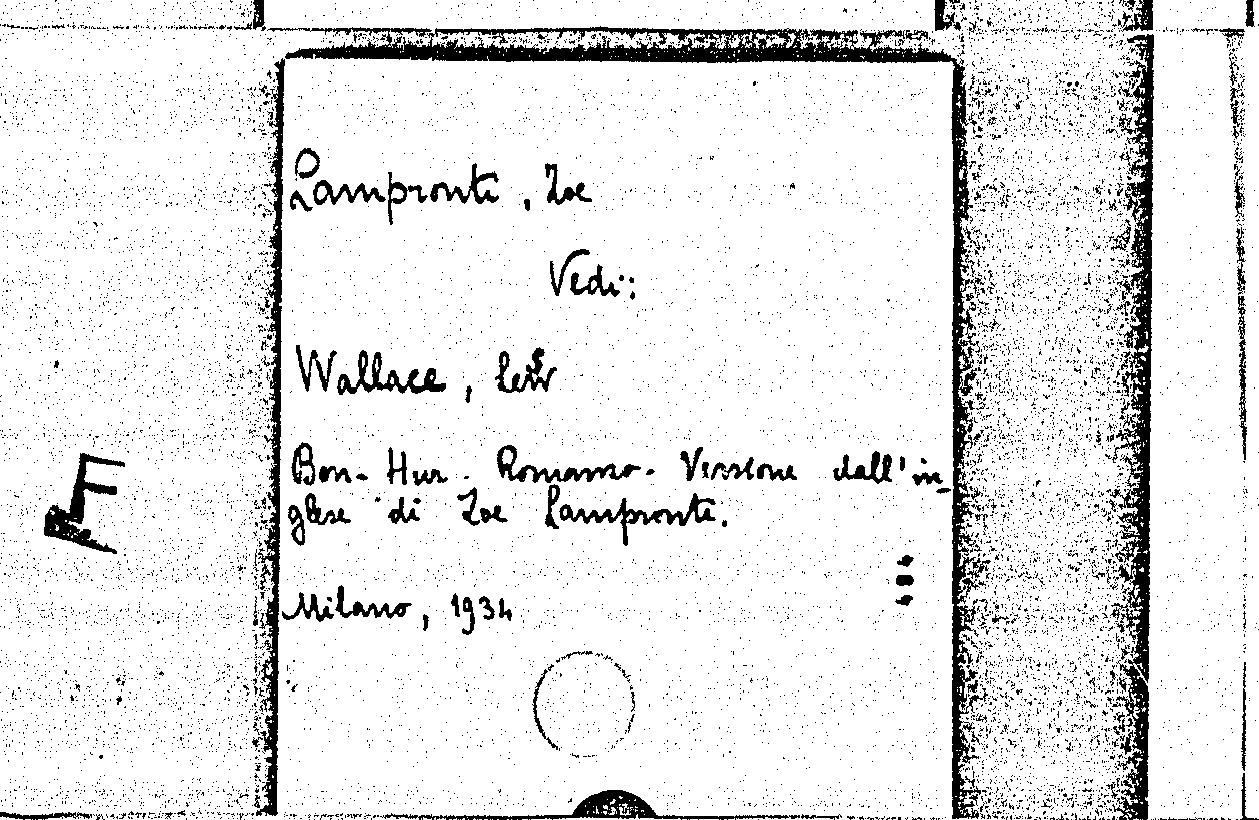 Lampronti, Zoe
Vedi:
Wallace, Lewis
Ben-Hur. Romanzo. Versione dall'in-
glese di Zoe Lampronti.
Milano, 1934
F